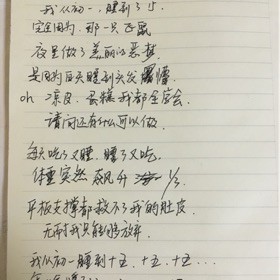 我从初一，睡到了15
完全因为，那一只飞鼠
夜里做了美丽的恶梦
是因为白天睡到头发
oh 凉皮、蛋糕我都全会
请问还有什么可以做
每天吃了又睡，睡了又吃
体重突然飙升 1/3
平板支撑都救不了我的肚皮
无奈我只能够放弃
我从初一睡到十五、十五、十五...